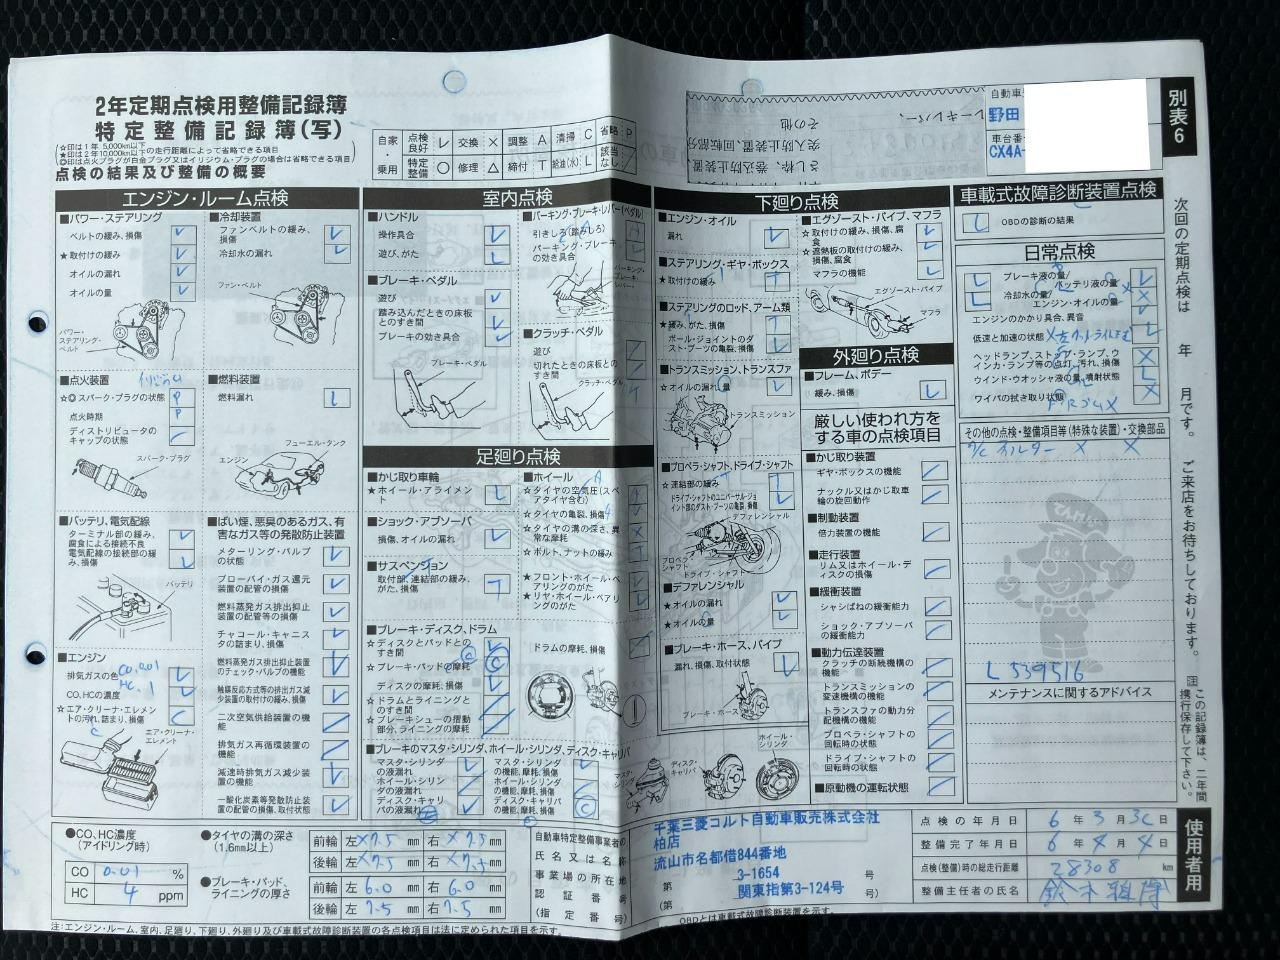 2年定期点検用整備記録簿
特定整備記録簿(写)
☆印は1年 5,000km以下
★印は2年 10,000km以下の走行距離によって省略できる項目
◎印は点火プラグが白金プラグ又はイリジウム・プラグの場合は省略できる項目
点検の結果及び整備の概要
自家・乗用
点検良好 レ 交換 × 調整 A 清掃 C 省略 P
特定整備 ○ 修理 △ 締付 T 給油(水) L 該当なし /
野田
車台番
CX4A-
別表6
エンジン・ルーム点検
■パワー・ステアリング
ベルトの緩み、損傷
★取付けの緩み
オイルの漏れ
オイルの量
パワー・ステアリング・ベルト
■冷却装置
ファンベルトの緩み、損傷
冷却水の漏れ
ファン・ベルト
■点火装置
☆◎スパーク・プラグの状態 P
点火時期 P
ディストリビュータのキャップの状態
スパーク・プラグ
■燃料装置
燃料漏れ
フューエル・タンク
エンジン
■バッテリ、電気配線
ターミナル部の緩み、腐食による接続不良
電気配線の接続部の緩み、損傷
バッテリ
■ばい煙、悪臭のあるガス、有害なガス等の発散防止装置
メターリング・バルブの状態
ブローバイ・ガス還元装置の配管の損傷
燃料蒸発ガス排出抑止装置の配管等の損傷
チャコール・キャニスタの詰まり、損傷
燃料蒸発ガス排出抑止装置のチェック・バルブの機能
触媒反応方式等の排出ガス減少装置の取付けの緩み、損傷
二次空気供給装置の機能
排気ガス再循環装置の機能
減速時排気ガス減少装置の機能
一酸化炭素等発散防止装置の配管の損傷、取付状態
■エンジン
排気ガスの色
CO,HCの濃度
☆エア・クリーナ・エレメントの汚れ、詰まり、損傷
エア・クリーナ・エレメント
室内点検
■ハンドル
操作具合
遊び、がた
■ブレーキ・ペダル
遊び
踏み込んだときの床板とのすき間
ブレーキの効き具合
ブレーキ・ペダル
■パーキング・ブレーキ・レバー(ペダル)
引きしろ(踏みしろ)
パーキング・ブレーキの効き具合
パーキング・ブレーキ・レバー
■クラッチ・ペダル
遊び
切れたときの床板とのすき間
クラッチ・ペダル
足廻り点検
■かじ取り車輪
★ホイール・アライメント
■ショック・アブソーバ
損傷、オイルの漏れ
■サスペンション
取付部、連結部の緩み、がた、損傷
■ホイール
☆タイヤの空気圧(スペアタイヤ含む)
☆タイヤの亀裂、損傷
☆タイヤの溝の深さ、異常な摩耗
☆ボルト、ナットの緩み
★フロント・ホイール・ベアリングのがた
★リヤ・ホイール・ベアリングのがた
■ブレーキ・ディスク、ドラム
☆ディスクとパッドとのすき間
☆ブレーキ・パッドの摩耗
ディスクの摩耗、損傷
☆ドラムとライニングとのすき間
☆ブレーキシューの摺動部分、ライニングの摩耗
ドラムの摩耗、損傷
■ブレーキのマスタ・シリンダ、ホイール・シリンダ、ディスク・キャリパ
マスタ・シリンダの液漏れ
ホイール・シリンダの液漏れ
ディスク・キャリパの液漏れ
マスタ・シリンダの機能、摩耗、損傷
ホイール・シリンダの機能、摩耗、損傷
ディスク・キャリパの機能、摩耗、損傷
下廻り点検
■エンジン・オイル
漏れ
■ステアリング・ギヤ・ボックス
★取付けの緩み T
■ステアリングのロッド、アーム類
★緩み、がた、損傷
ボール・ジョイントのダスト・ブーツの亀裂、損傷
■トランスミッション、トランスファ
☆オイルの漏れ、量
トランスミッション
■プロペラ・シャフト、ドライブ・シャフト
☆連結部の緩み
ドライブ・シャフトのユニバーサル・ジョイント部のダスト・ブーツの亀裂、損傷
デファレンシャル
プロペラ・シャフト
ドライブ・シャフト
■デファレンシャル
★オイルの漏れ
★オイルの量
■ブレーキ・ホース、パイプ
漏れ、損傷、取付状態
ブレーキ・ホース
ホイール・シリンダ
ディスク・キャリパ
■エグゾースト・パイプ、マフラ
☆取付けの緩み、損傷、腐食
☆遮熱板の取付けの緩み、損傷、腐食
マフラの機能
エグゾースト・パイプ
マフラ
外廻り点検
■フレーム、ボデー
緩み、損傷
厳しい使われ方をする車の点検項目
■かじ取り装置
ギヤ・ボックスの機能
ナックル又はかじ取車輪の旋回動作
■制動装置
倍力装置の機能
■走行装置
リム又はホイール・ディスクの損傷
■緩衝装置
シャシばねの緩衝能力
ショック・アブソーバの緩衝能力
■動力伝達装置
クラッチの断続機構の機能
トランスミッションの変速機構の機能
トランスファの動力分配機構の機能
プロペラ・シャフトの回転時の状態
ドライブ・シャフトの回転時の状態
■原動機の運転状態
車載式故障診断装置点検
OBDの診断の結果
日常点検
ブレーキ液の量/
冷却水の量/
バッテリ液の量
エンジン・オイルの量 ×
エンジンのかかり具合、異音
低速と加速の状態
ヘッドランプ、ストップ・ランプ、ウインカ・ランプ等の点灯、汚れ、損傷
ウインド・ウオッシャ液の量、噴射状態
ワイパの拭き取り状態
その他の点検・整備項目等(特殊な装置)・交換部品
A/C フィルター × ×
L539516
メンテナンスに関するアドバイス
次回の定期点検は 年 月です。 ご来店をお待ちしております。
注 この記録簿は、二年間携行保存して下さい。
使用者用
●CO、HC濃度(アイドリング時)
CO 0.01 %
HC 4 ppm
●タイヤの溝の深さ(1.6mm以上)
前輪 左 ×7.5 mm 右 ×7.5 mm
後輪 左 ×7.5 mm 右 ×7.5 mm
●ブレーキ・パッド、ライニングの厚さ
前輪 左 6.0 mm 右 6.0 mm
後輪 左 7.5 mm 右 7.5 mm
自動車特定整備事業者の
氏名又は名称
事業場の所在地
認証番号
(指定番号)
千葉三菱コルト自動車販売株式会社
柏店
流山市名都借844番地
第 3-1654 号
(第 関東指第3-124号 号)
点検の年月日 6年3月30日
整備完了年月日 6年4月4日
点検(整備)時の総走行距離 28308 km
整備主任者の氏名
注:エンジン・ルーム、室内、足廻り、下廻り、外廻り及び車載式故障診断装置の各点検項目は法に定められた項目を示す。
OBDとは車載式故障診断装置を示す。